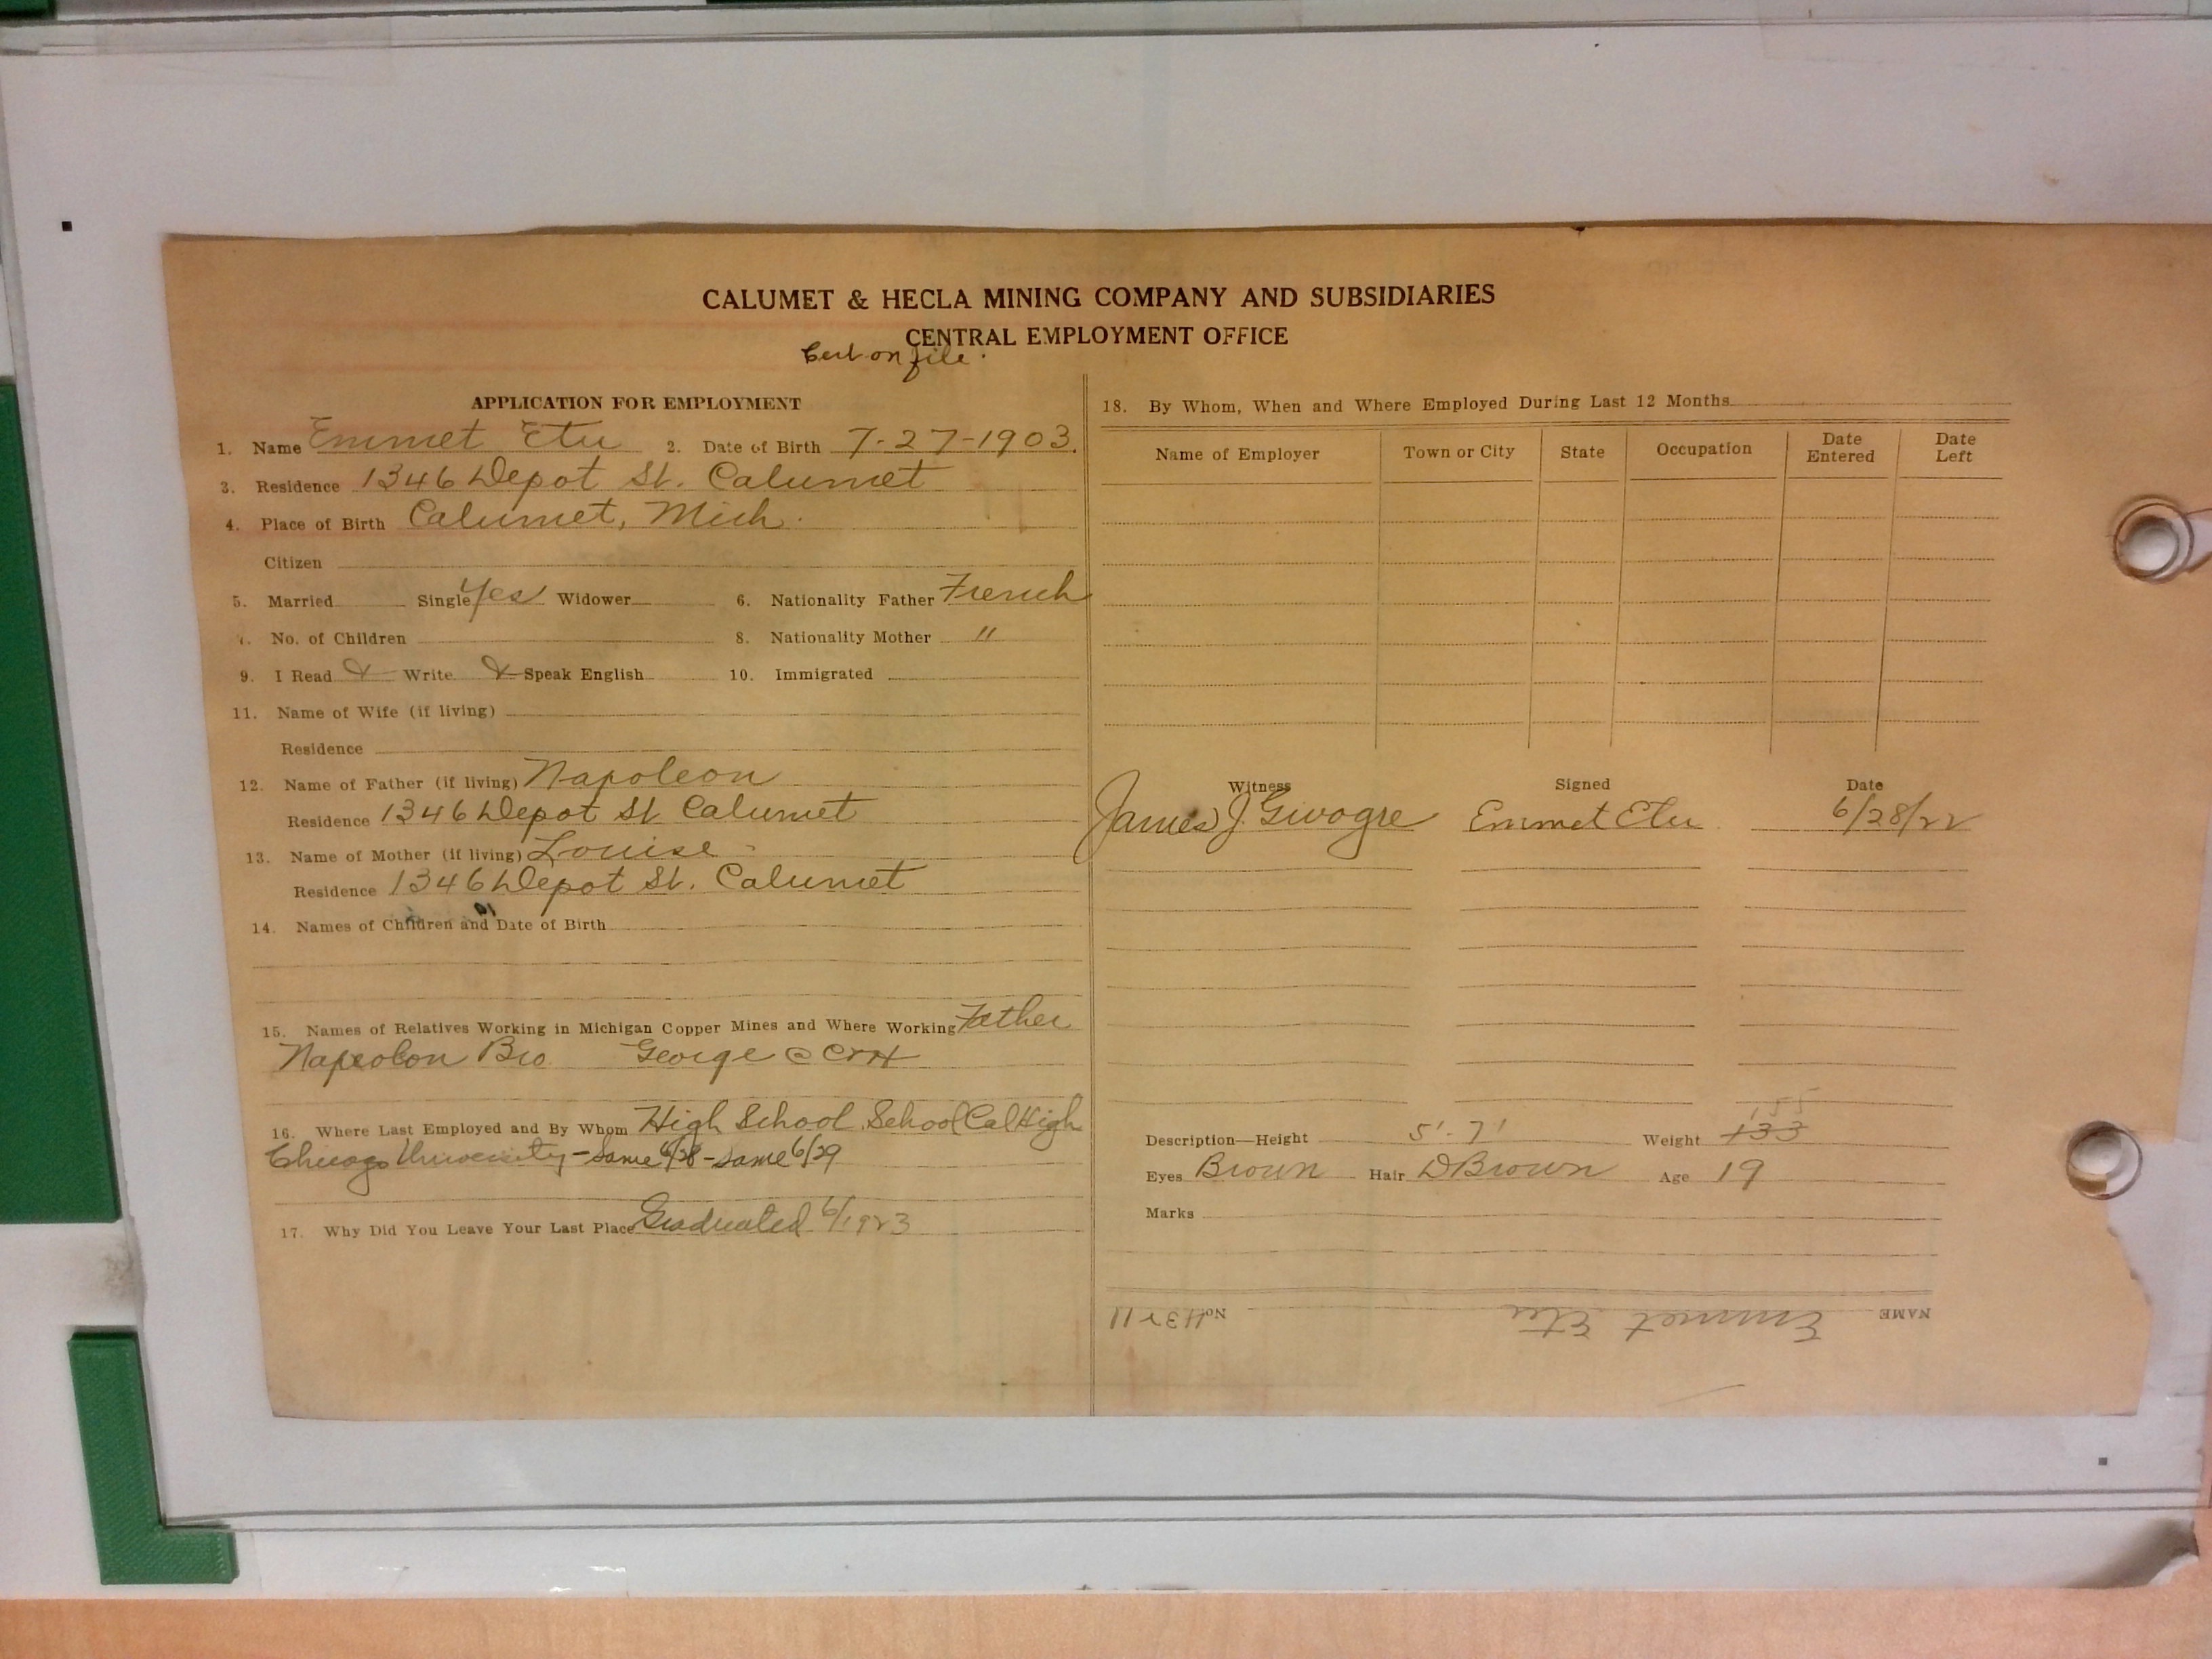 CALUMET & HECLA MINING COMPANY AND SUBSIDIARIES
CENTRAL EMPLOYMENT OFFICE
Cert on file.
APPLICATION FOR EMPLOYMENT
1. Name Emmet Etu 2. Date of Birth 7-27-1903.
3. Residence 1346 Depot St. Calumet
4. Place of Birth Calumet, Mich.
Citizen
5. Married Single Yes Widower 6. Nationality Father French
7. No. of Children 8. Nationality Mother "
9. I Read & Write & Speak English 10. Immigrated
11. Name of Wife (if living)
Residence
12. Name of Father (if living) Napoleon
Residence 1346 Depot St. Calumet
13. Name of Mother (if living) Louise
Residence 1346 Depot St. Calumet
14. Names of Children and Date of Birth
15. Names of Relatives Working in Michigan Copper Mines and Where Working Father
Napeolon Bro. George @ C&H
16. Where Last Employed and By Whom High School. School Cal High
Chicago University - Same 6/28 - Same 6/29
17. Why Did You Leave Your Last Place Graduated 6/1923
18. By Whom, When and Where Employed During Last 12 Months
Name of Employer Town or City State Occupation Date Entered Date Left
Witness Signed Date
James J. Emmet Etu 6/28/22
155
Description—Height 5'-7' Weight 133
Eyes Brown Hair D Brown Age 19
Marks
NAME Emmet Etu No.